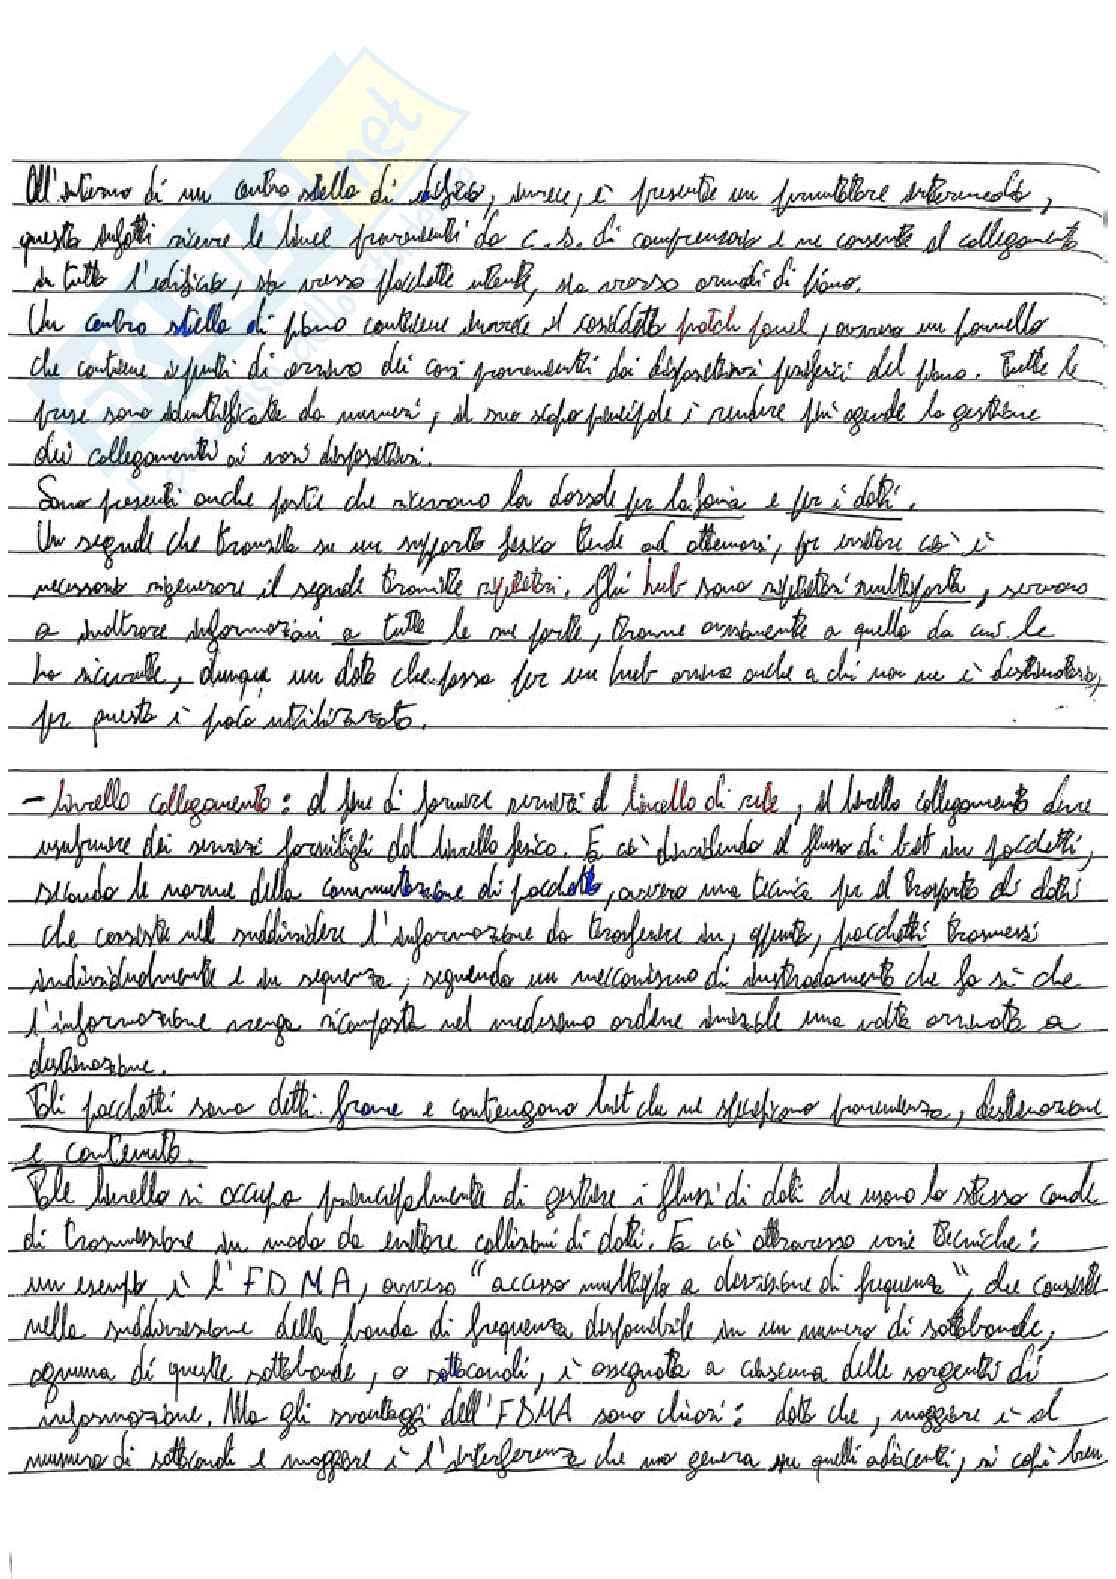 All'interno di un centro stella di edificio, invece, è presente un permutatore intermedio,
questo infatti riceve le linee provenienti da c.s. di comprensorio e ne consente il collegamento
in tutto l'edificio, sia verso placchette utente, sia verso armadi di piano.
Un centro stella di piano contiene invece il cosiddetto patch panel, ovvero un pannello
che contiene i punti di arrivo dei cavi provenienti dai dispositivi periferici del piano. Tutte le
prese sono identificate da numeri, il suo scopo principale è rendere più agevole la gestione
dei collegamenti ai vari dispositivi.
Sono presenti anche porte che ricevono la dorsale per la fonia e per i dati.
Un segnale che transita su un supporto fisico tende ad attenuarsi, per evitare ciò è
necessario rigenerare il segnale tramite ripetitori. Gli hub sono ripetitori multiporta, servono
a inoltrare informazioni a tutte le sue porte, tranne ovviamente a quella da cui le
ha ricevute, dunque un dato che passa per un hub arriva anche a chi non ne è destinatario,
per questo è poco utilizzato.
- Livello collegamento: al fine di fornire servizi al livello di rete, il livello collegamento deve
usufruire dei servizi fornitigli dal livello fisico. Fa ciò dividendo il flusso di bit in pacchetti,
secondo le norme della commutazione di pacchetto, ovvero una tecnica per il trasporto di dati
che consiste nel suddividere l'informazione da trasferire in, appunto, pacchetti trasmessi
individualmente e in sequenza, seguendo un meccanismo di instradamento che fa sì che
l'informazione venga ricomposta nel medesimo ordine iniziale una volta arrivata a
destinazione.
Tali pacchetti sono detti frame e contengono bit che ne specificano provenienza, destinazione
e contenuto.
Tale livello si occupa principalmente di gestire i flussi di dati che usano lo stesso canale
di trasmissione in modo da evitare collisioni di dati. Fa ciò attraverso varie tecniche:
un esempio è l'FDMA, ovvero "accesso multiplo a divisione di frequenza", che consiste
nella suddivisione della banda di frequenza disponibile in un numero di sottobande,
ognuna di queste sottobande, o sottocanali, è assegnata a ciascuna delle sorgenti di
informazione. Ma gli svantaggi dell'FDMA sono chiari: dato che, maggiore è il
numero di sottocanali e maggiore è l'interferenza che uno genera su quelli adiacenti, si capì ben